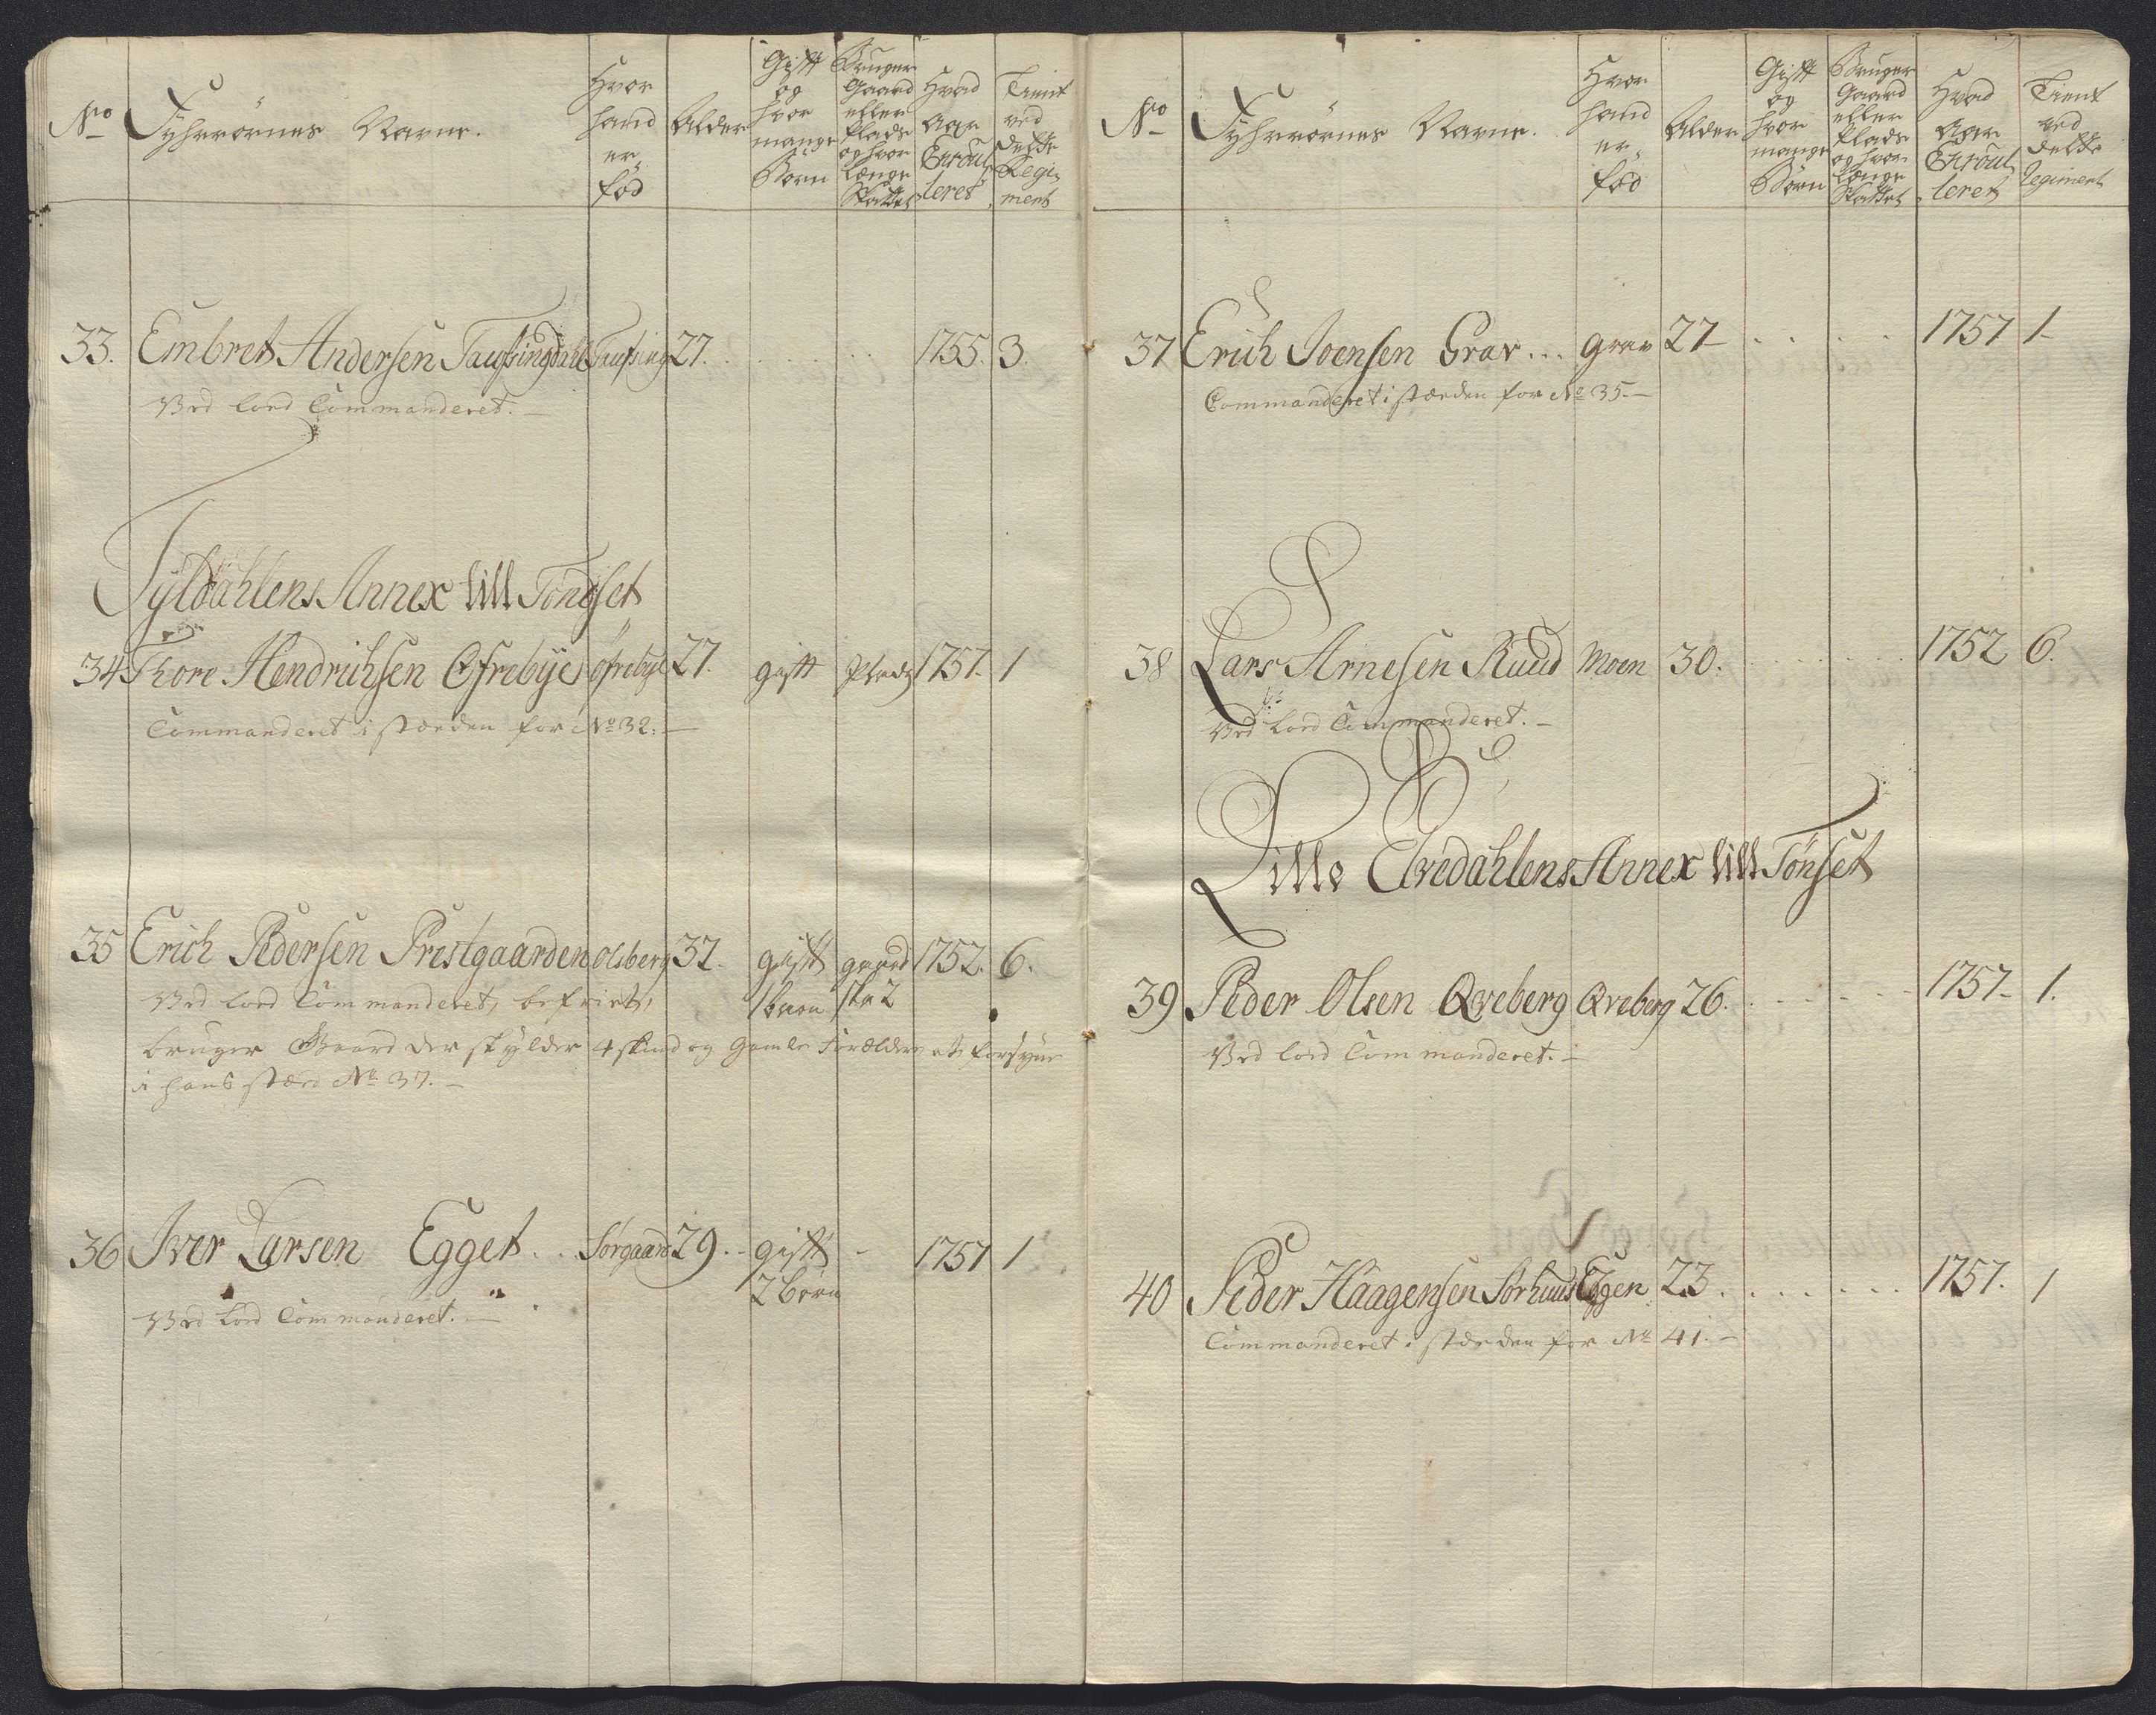 No
Fyhrrørnes Navne.
Hvor
hand
er
fød
Alder
Gift
og
hvor
mange
Børn
Bruger
Gaard
eller
Plads
og hvor
længe
Skattet
Hvad
Aar
Enroul
leret
Tient
ved
dette
Regi
ment
33. Embret Andersen Taussingdahl Taussing 27. 1755. 3.
Ved lord Commanderet.
Tyldahlens Annex till Tøndset
34 Thore Hendrichsen Øfrebye øfrebye 27. gift plads 1757. 1
Commanderet i stæden for No 32.
35 Erich Pedersen Prestgaarden Olsberg 32. gift gaard 1752. 6.
Ved lord Commanderet, befriet,
1 barn ska 2
bruger Gaard der skylder 4 skind og gamle Forældre at forsyne
i hans stæd No 37.
36 Iver Larsen Egget... Sørgaard 29. gift - 1757 1
2 børn
Ved lord Commanderet.
No
Fyhrrørnes Navne.
Hvor
hand
er
fød
Alder
Gift
og
hvor
mange
Børn
Bruger
Gaard
eller
Plads
og hvor
længe
Skattet
Hvad
Aar
Enroul
leret
Tient
ved
dette
Regiment
37 Erich Joensen Grav... grav 27 1757 1
Commanderet i stæden for No 35.
38 Lars Arnesen Ruud Moen 30. 1752 6.
Ved lord Commanderet.
Lille Elvedahlens Annex till Tønset
39 Peder Olsen Qveberg Qveberg 26. 1757 1.
Ved lord Commanderet.
40 Peder Haagensen Sørhuus Eggen 23. 1757. 1
Commanderet i stæden for No 41.